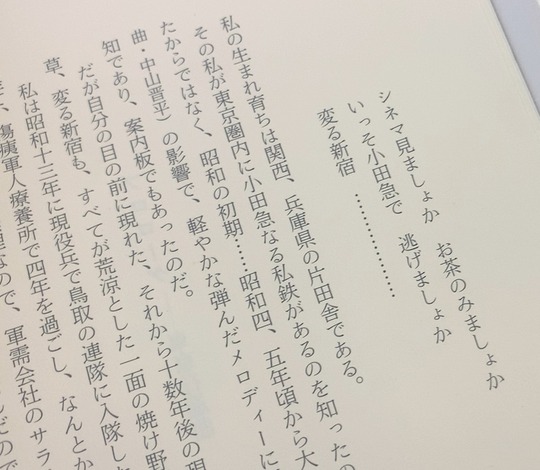 シネマ見ましょか　お茶のみましょか
いっそ小田急で　逃げましょか
変る新宿 ………………
私の生まれ育ちは関西、兵庫県の片田舎である。
その私が東京圏内に小田急なる私鉄があるのを知ったの
たからではなく、昭和の初期……昭和四、五年頃から大
曲・中山晋平）の影響で、軽やかな弾んだメロディーに
知であり、案内板でもあったのだ。
だが自分の目の前に現れた、それから十数年後の現
草、変る新宿も、すべてが荒涼とした一面の焼け野
私は昭和十三年に現役兵で鳥取の連隊に入隊した
傷痍軍人療養所で四年を過ごし、なんとか
なので、軍需会社のサラ